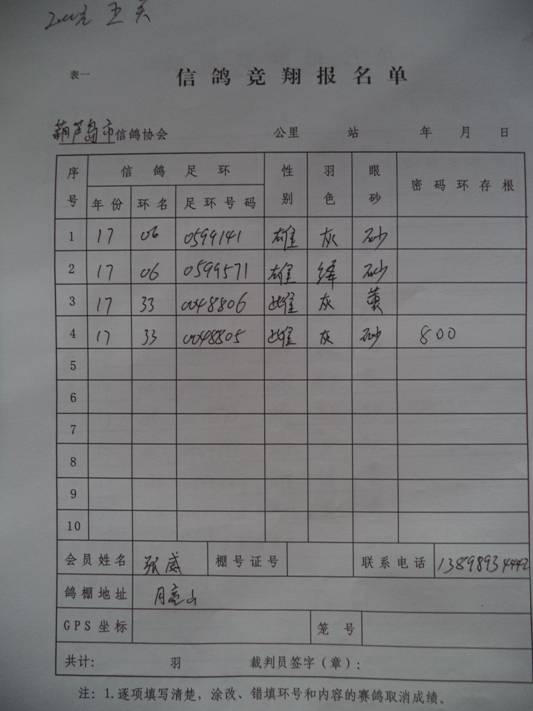 表一
信鸽竞翔报名单
葫芦岛市信鸽协会 公里 站 年 月 日
序号 信鸽足环 性别 羽色 眼砂 密码环存根
年份 环名 足环号码
1 17 06 0599141 雄 灰 砂
2 17 06 0599571 雄 绛 砂
3 17 33 0048806 雌 灰 黄
4 17 33 0048805 雌 灰 砂 800
5
6
7
8
9
10
会员姓名 张威 棚号证号 联系电话
鸽棚地址 月亮山
GPS坐标 笼号
共计: 羽 裁判员签字(章):
注:1.逐项填写清楚,涂改、错填环号和内容的赛鸽取消成绩。